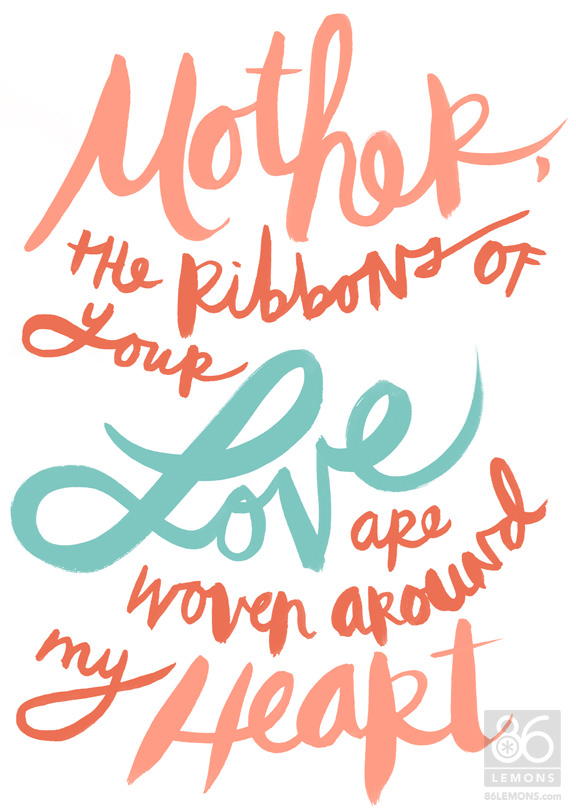 Mother,
the Ribbons of
your
Love
are
woven around
my
Heart
86
LEMONS
86LEMONS.com